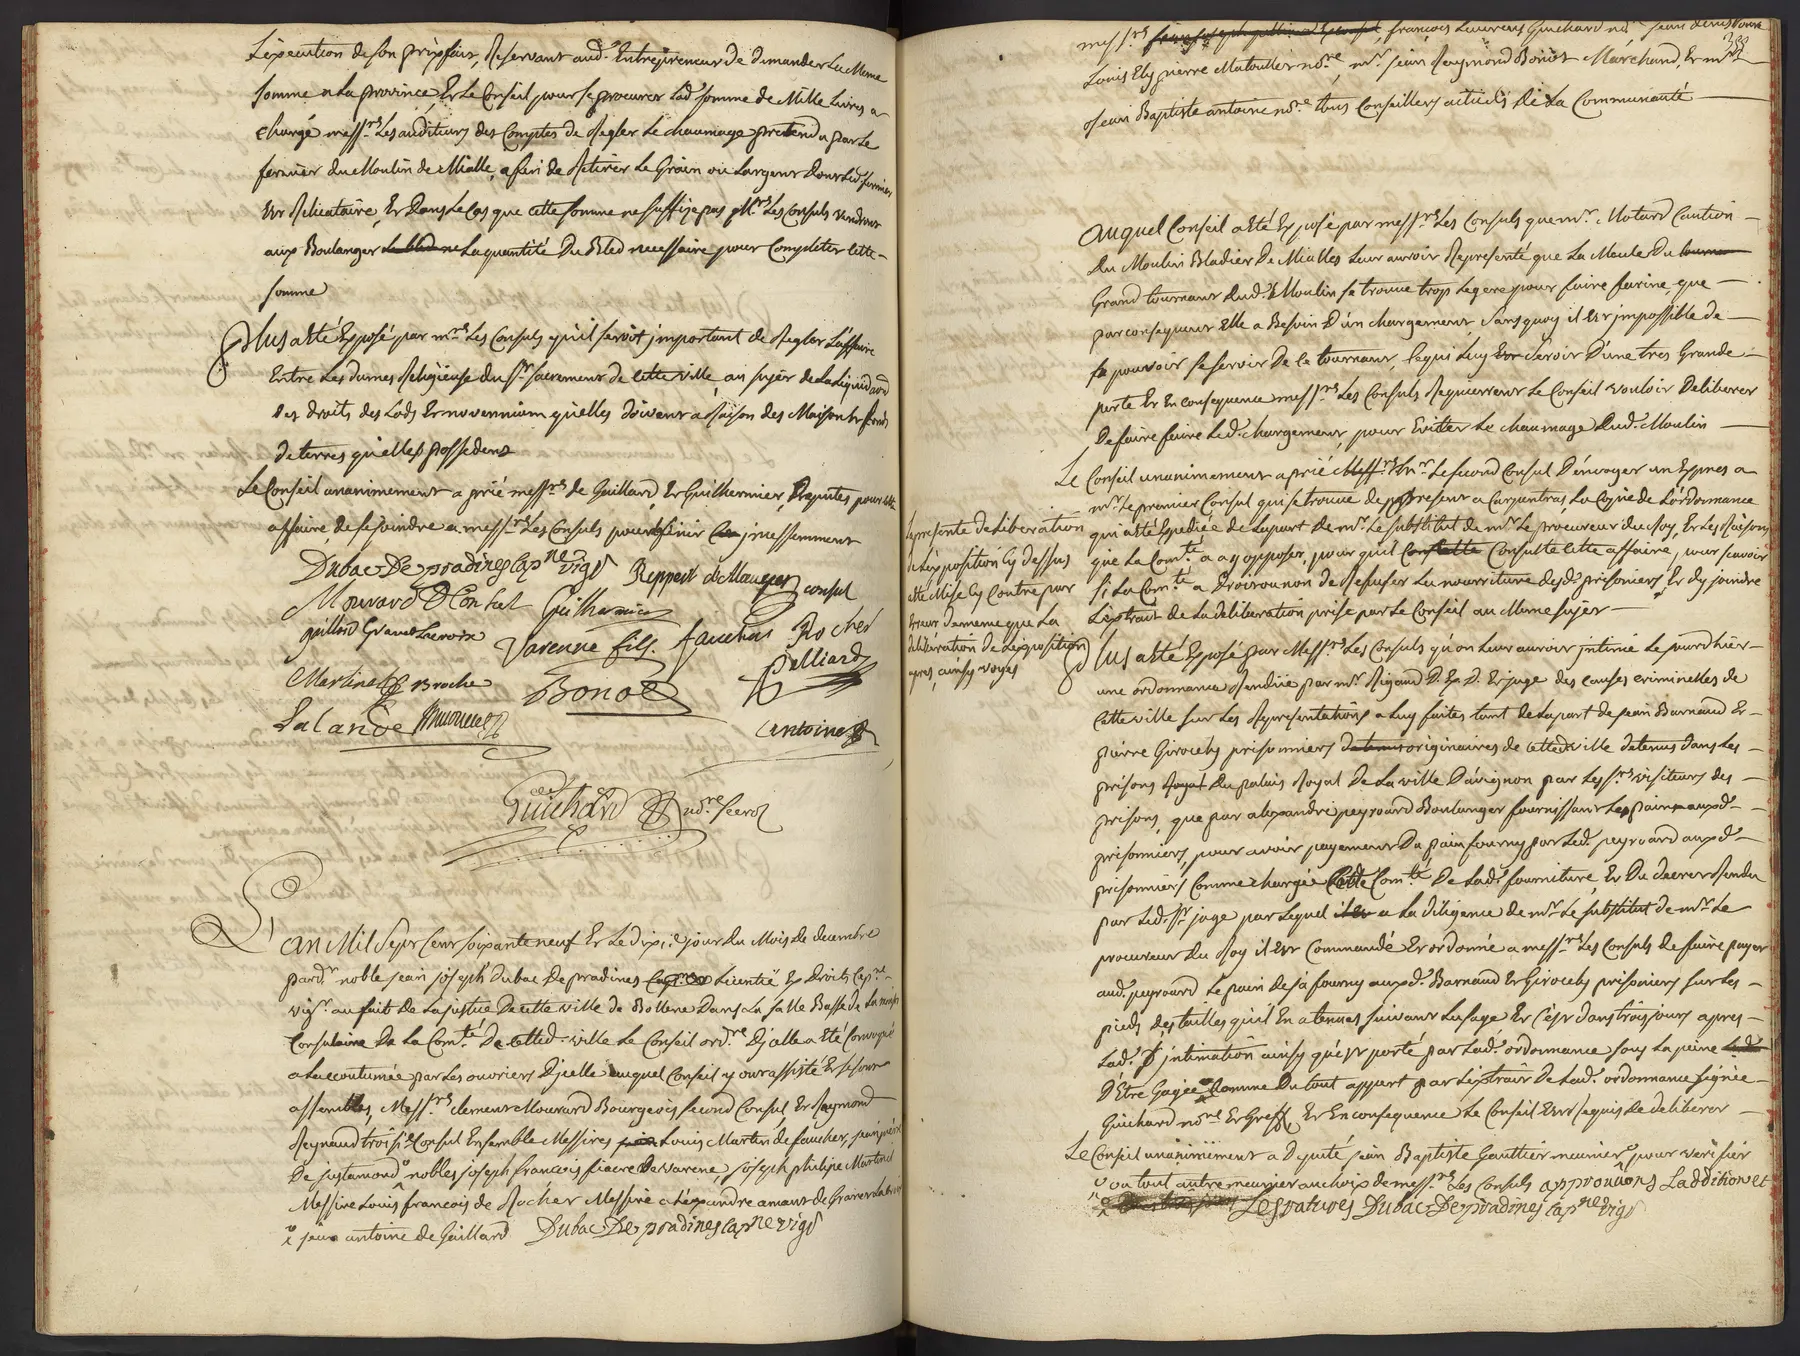 L'execution de son prixfait, Reservant aud. Entrepreneur de demander La Meme
somme a La province, Et Le Conseil pour se procurer lad. somme de Mille Livres a
chargé mess.rs Les auditeurs des Comptes de Regler Le chaumage pretendu par Le
fermier du Moulin de Mialle, afin de Retirer Le Grain ou Largent dont Led. fermier
Est ReliCataire, Et Dans Le Cas que cette somme ne suffise pas M.rs Les Consuls vendront
aux Boulanger La quantité Du Bled necessaire pour Completer cette
somme
Plus a été Exposé par m.rs Les Consuls qu'il seroit important de Regler L'affaire
Entre Les dames Religieuse du S.t sacrement de cette ville, au sujet de La Liquida.on
Des droits des Lods Et nouvennium qu'elles doivent a Raison des Maisons Et fonds
de terres qu'elles possedent
Le Conseil unanimement a prié mess.rs de Gaillard, Et Guilhermier, Deputés pour cette
affaire, de se joindre a mess.rs Les Consuls pour finir incessemment
Dubac De pradines Cap.ne Vig.r
Reppert de Mauquer consul
Mouvard D Conhel Guilhermier
guillard Gravet Lacroix
Varenne fils. faucher Rocher
Martinel Broche Bonot pelliard
Lalande
antoine
Guichard no.re secre.
L'an Mil Sept Cent soixante neuf Et Le dix.e jour Du Mois de decembre
pard.t noble jean joseph Dubac De pradines Licentié Ex Droits Cap.ne
vig.r au fait de La justice De cette ville de Bollene Dans La salle Basse de La maison
Consulaire De La Com.té De cetted. ville Le Conseil ord.re D'jcelle a été Convoqué
a La coutumée par Les ouvriers D'jcelle auquel Conseil y ont assisté Et se sont
assemblés, Mess.rs clement Mourard Bourgeois second Consul, Et Raymond
Reynaud troisi.e Consul Ensemble Messires Louis Martin de faucher, jean pierre
De justamond, nobles joseph francois fiacre De varene, joseph philipe Martinel
Messire Louis francois de Rocher Messire alexandre amant de Gravet
jean antoine de Gaillard Dubac De pradines Cap.ne Vig.r
mess.rs francois Laurens Guichard no.re jean denis
388
Louis Ely pierre Matouller no.re, m.r jean Raymond Bonot Marchand, Et m.r
jean Baptiste antoine no.re tous Conseillers actuels De La Communauté
Auquel Conseil a été Exposé par mess.rs Les Consuls que m.r Motard Caution
Du Moulin Bladier De Mialles Leur auroit Representé que La Meule Du
Grand tournant Dud. Moulin se trouve trop Legere pour faire farine, que
par consequent Elle a Besoin D'un chargement, sans quoy il Est impossible de
pouvoir se servir De ce tournant, Ce qui Luy seroit D'une tres Grande
perte Et En consequence mess.rs Les Consuls Requierrent Le Conseil vouloir Deliberer
De faire faire Led. chargement, pour Eviter Le chaumage Dud. Moulin
Le Conseil unanimement a prié m.r Le second Consul D'envoyer un Expres a
m.r Le premier Consul qui se trouve de present a Carpentras, La Copie de L'ordonnance
qui a été Expediée de La part De m.r Le substitut de m.r Le procureur du Roy, Et Les Raisons
que La Com.té a a y opposer, pour qu'il Consulte cette affaire, pour scavoir
si La Com.té a Droit ou non de Refuser La nourriture desd. prisoniers, Et d'y joindre
L'Extrait de La deliberation prise par Le Conseil au Meme sujet
La presente deliberation
et L'exposition Cy dessus
été Mise Cy Contre par
Erreur de meme que La
deliberation de L'exposition
apres, ainsy voyes
Plus a été Exposé par Mess.rs Les Consuls qu'on Leur auroit jntimé Le jour d'hier
une ordonnance Rendüe par m.r Rigaud D. Ex. D. Et juge des causes criminelles de
Cette ville sur Les Representations a Luy faites tant de La part de jean Barnaud Et
pierre Girocels prisonniers originaires de cetted. ville detenus dans Les
prisons Du palais Royal De La ville D'avignon par Les s.rs visiteurs des
prisons, que par alexandre peyrouard Boulanger fournissant Les pain auxd.
prisonniers, pour avoir payement Du pain fourny par Led. peyrouard auxd.
prisonniers Comme chargée Cette Com.té De Lad. fourniture, Et Du decret Rendu
par Led. s.r juge par Lequel a La diligence de m.r Le substitut de m.r Le
procureur Du Roy il Est Commandé Et ordonné a mess.rs Les Consuls de faire payer
aud. peyrouard Le pain De ja fourny auxd. Barnaud Et Girocels prisoniers sur Les
pieds des tailles qu'il En a tenues suivant L'usage Et C'est dans trois jours apres
Lad. jntimation ainsy qu'est porté par Lad. ordonnance sous La peine
D'Etre Gagée Comme Du tout appert par L'Extrait De Lad. ordonnance signée
Guichard no.re Et Greff. Et En consequence Le Conseil Est Requis de deliberer
Le Conseil unanimement a Deputé jean Baptiste Gauttier meunier pour verifier
ou tout autre meunier au choix de mess.rs Les Consuls approuvons L'addition et
Les ratures Dubac De pradines Cap.ne Vig.r